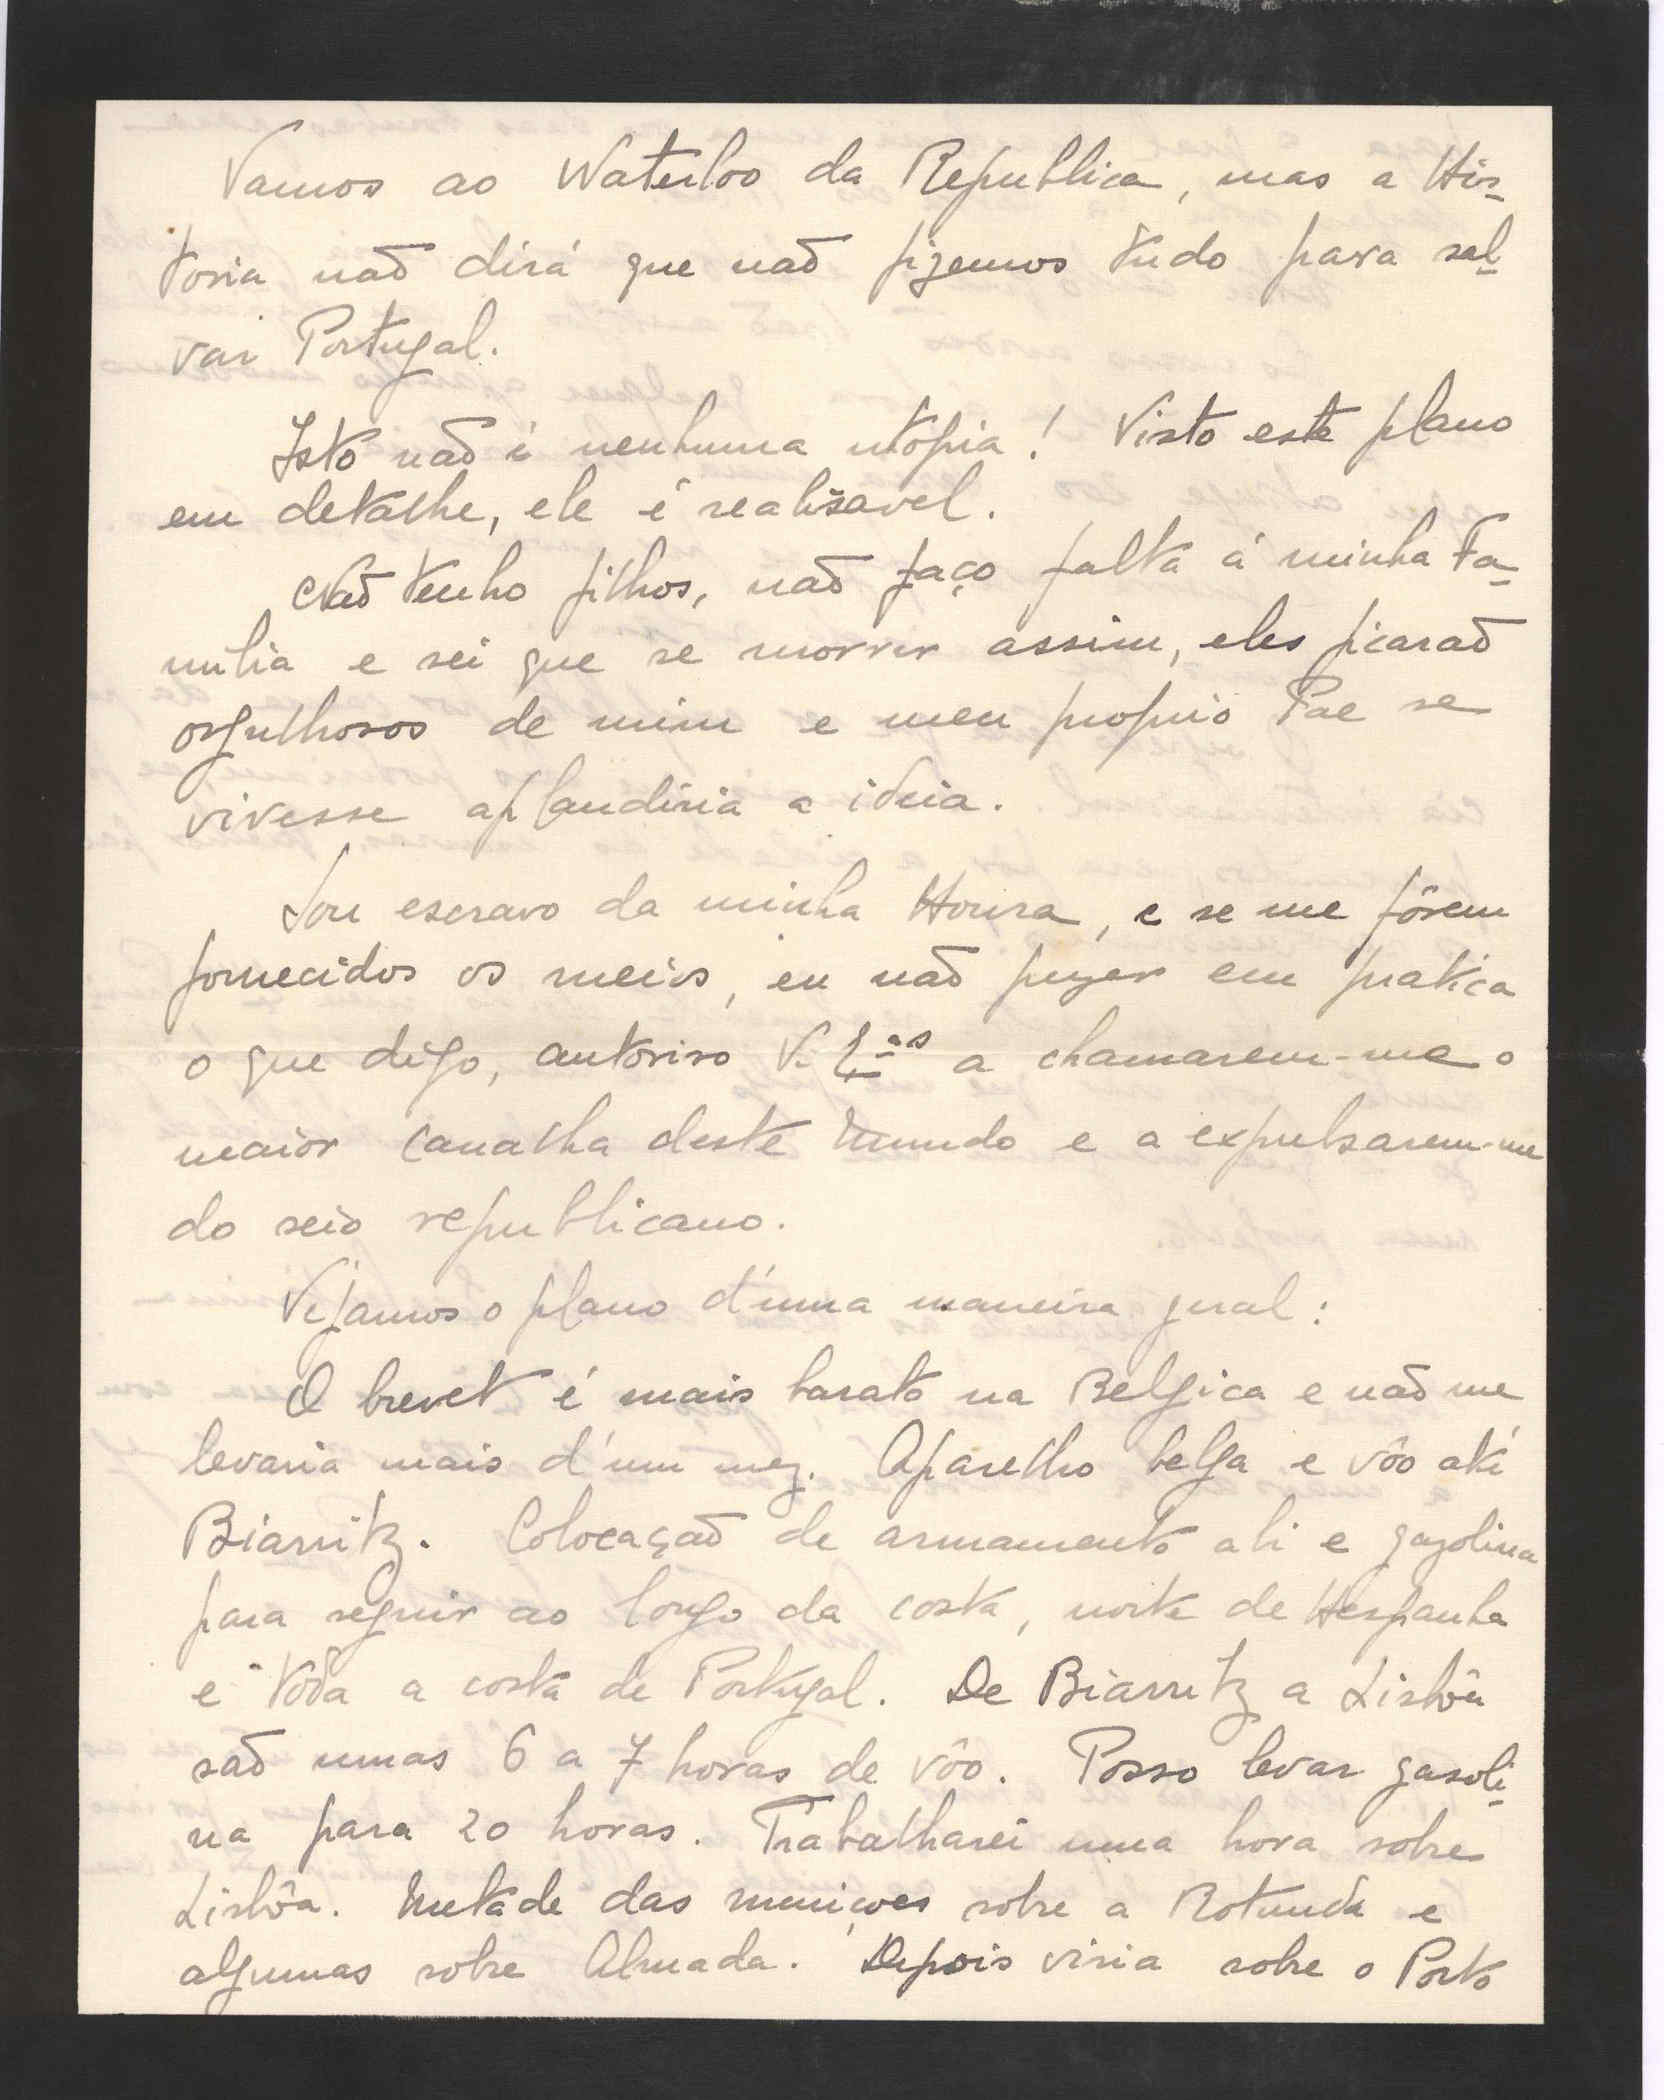 Vamos ao Waterloo da Republica, mas a His-
toria não dirá que não fizemos tudo para sal-
var Portugal.
Isto não é nenhuma utopia! Visto este plano
em detalhe, ele é realisavel.
Não tenho filhos, não faço falta á minha Fa-
milia e sei que se morrer assim, eles ficarão
orgulhosos de mim e meu proprio Pae se
vivesse aplaudiria a ideia.
Sou escravo da minha Honra, e se me fôrem
fornecidos os meios, eu não puzer em pratica
o que digo, autoriso V. Exas a chamarem-me o
maior canalha deste mundo e a expulsarem-me
do seio republicano.
Vejamos o plano d'uma maneira geral:
O brevet é mais barato na Belgica e não me
levaria mais d'um mez. Aparelho belga e vôo até
Biarritz. Colocação de armamento ali e gazolina
para seguir ao longo da costa, norte de Hespanha
e tôda a costa de Portugal. De Biarritz a Lisbôa
são umas 6 a 7 horas de vôo. Posso levar gasoli-
na para 20 horas. Trabalharei uma hora sobre
Lisbôa. Metade das muniçoes sobre a Rotunda e
algumas sobre Almada. Depois viria sobre o Porto